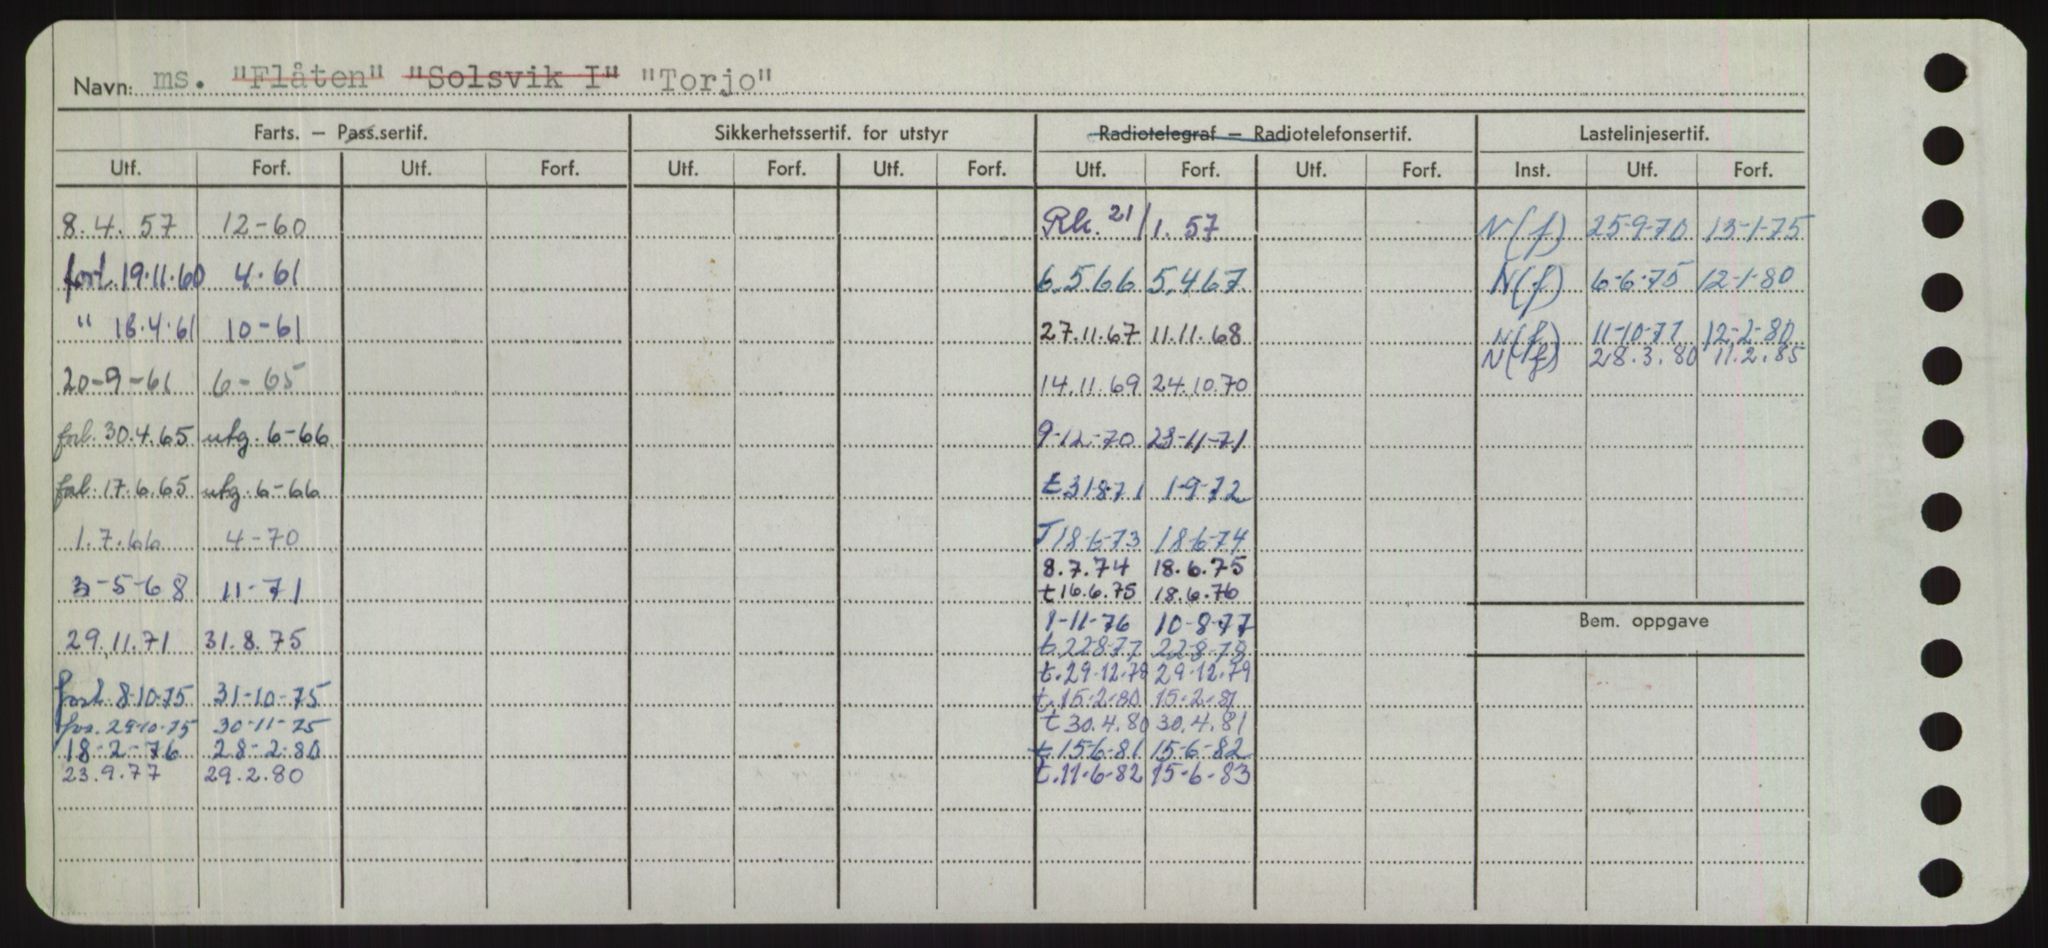 Navn: ms. "Flåten" "Solsvik I" "Torjo"
Farts. – Pass.sertif. Sikkerhetssertif. for utstyr Radiotelegraf – Radiotelefonsertif. Lastelinjesertif.
Utf. Forf. Utf. Forf. Utf. Forf. Utf. Forf. Utf. Forf. Utf. Forf. Inst. Utf. Forf.
8.4.57 12-60 Rk. 21/1.57 N(f) 25-9-70 13-1-75
forl. 19.11.60 4.61 6.5.66 5.4.67 N(f) 6-6-75 12-1-80
" 18.4.61 10-61 27.11.67 11.11.68 N(f) 11-10-77 12-2-80
N(f) 28.3.80 11.2.85
20-9-61 6-65 14.11.69 24.10.70
forl. 30.4.65 utg. 6-66 9-12-70 23-11-71
forl. 17.6.65 utg. 6-66 t 31.8.71 1-9-72
1.7.66 4-70 T 18-6-73 18-6-74
8.7.74 18.6.75
3-5-68 11-71 t 16.6.75 18.6.76
1-11-76 10-8-77
Bem. oppgave
29.11.71 31.8.75 t. 22.8.77 22-8-78
t. 29-12.78 29-12.79
forl. 8-10-75 31-10-75 t. 15-2-80 15-2-81
for. 29-10-75 30-11-75 t 30.4.80 30.4.81
18-2-76 28-2-80 t. 15-6-81 15-6-82
23.9.77 29.2.80 t. 11-6-82 15-6-83